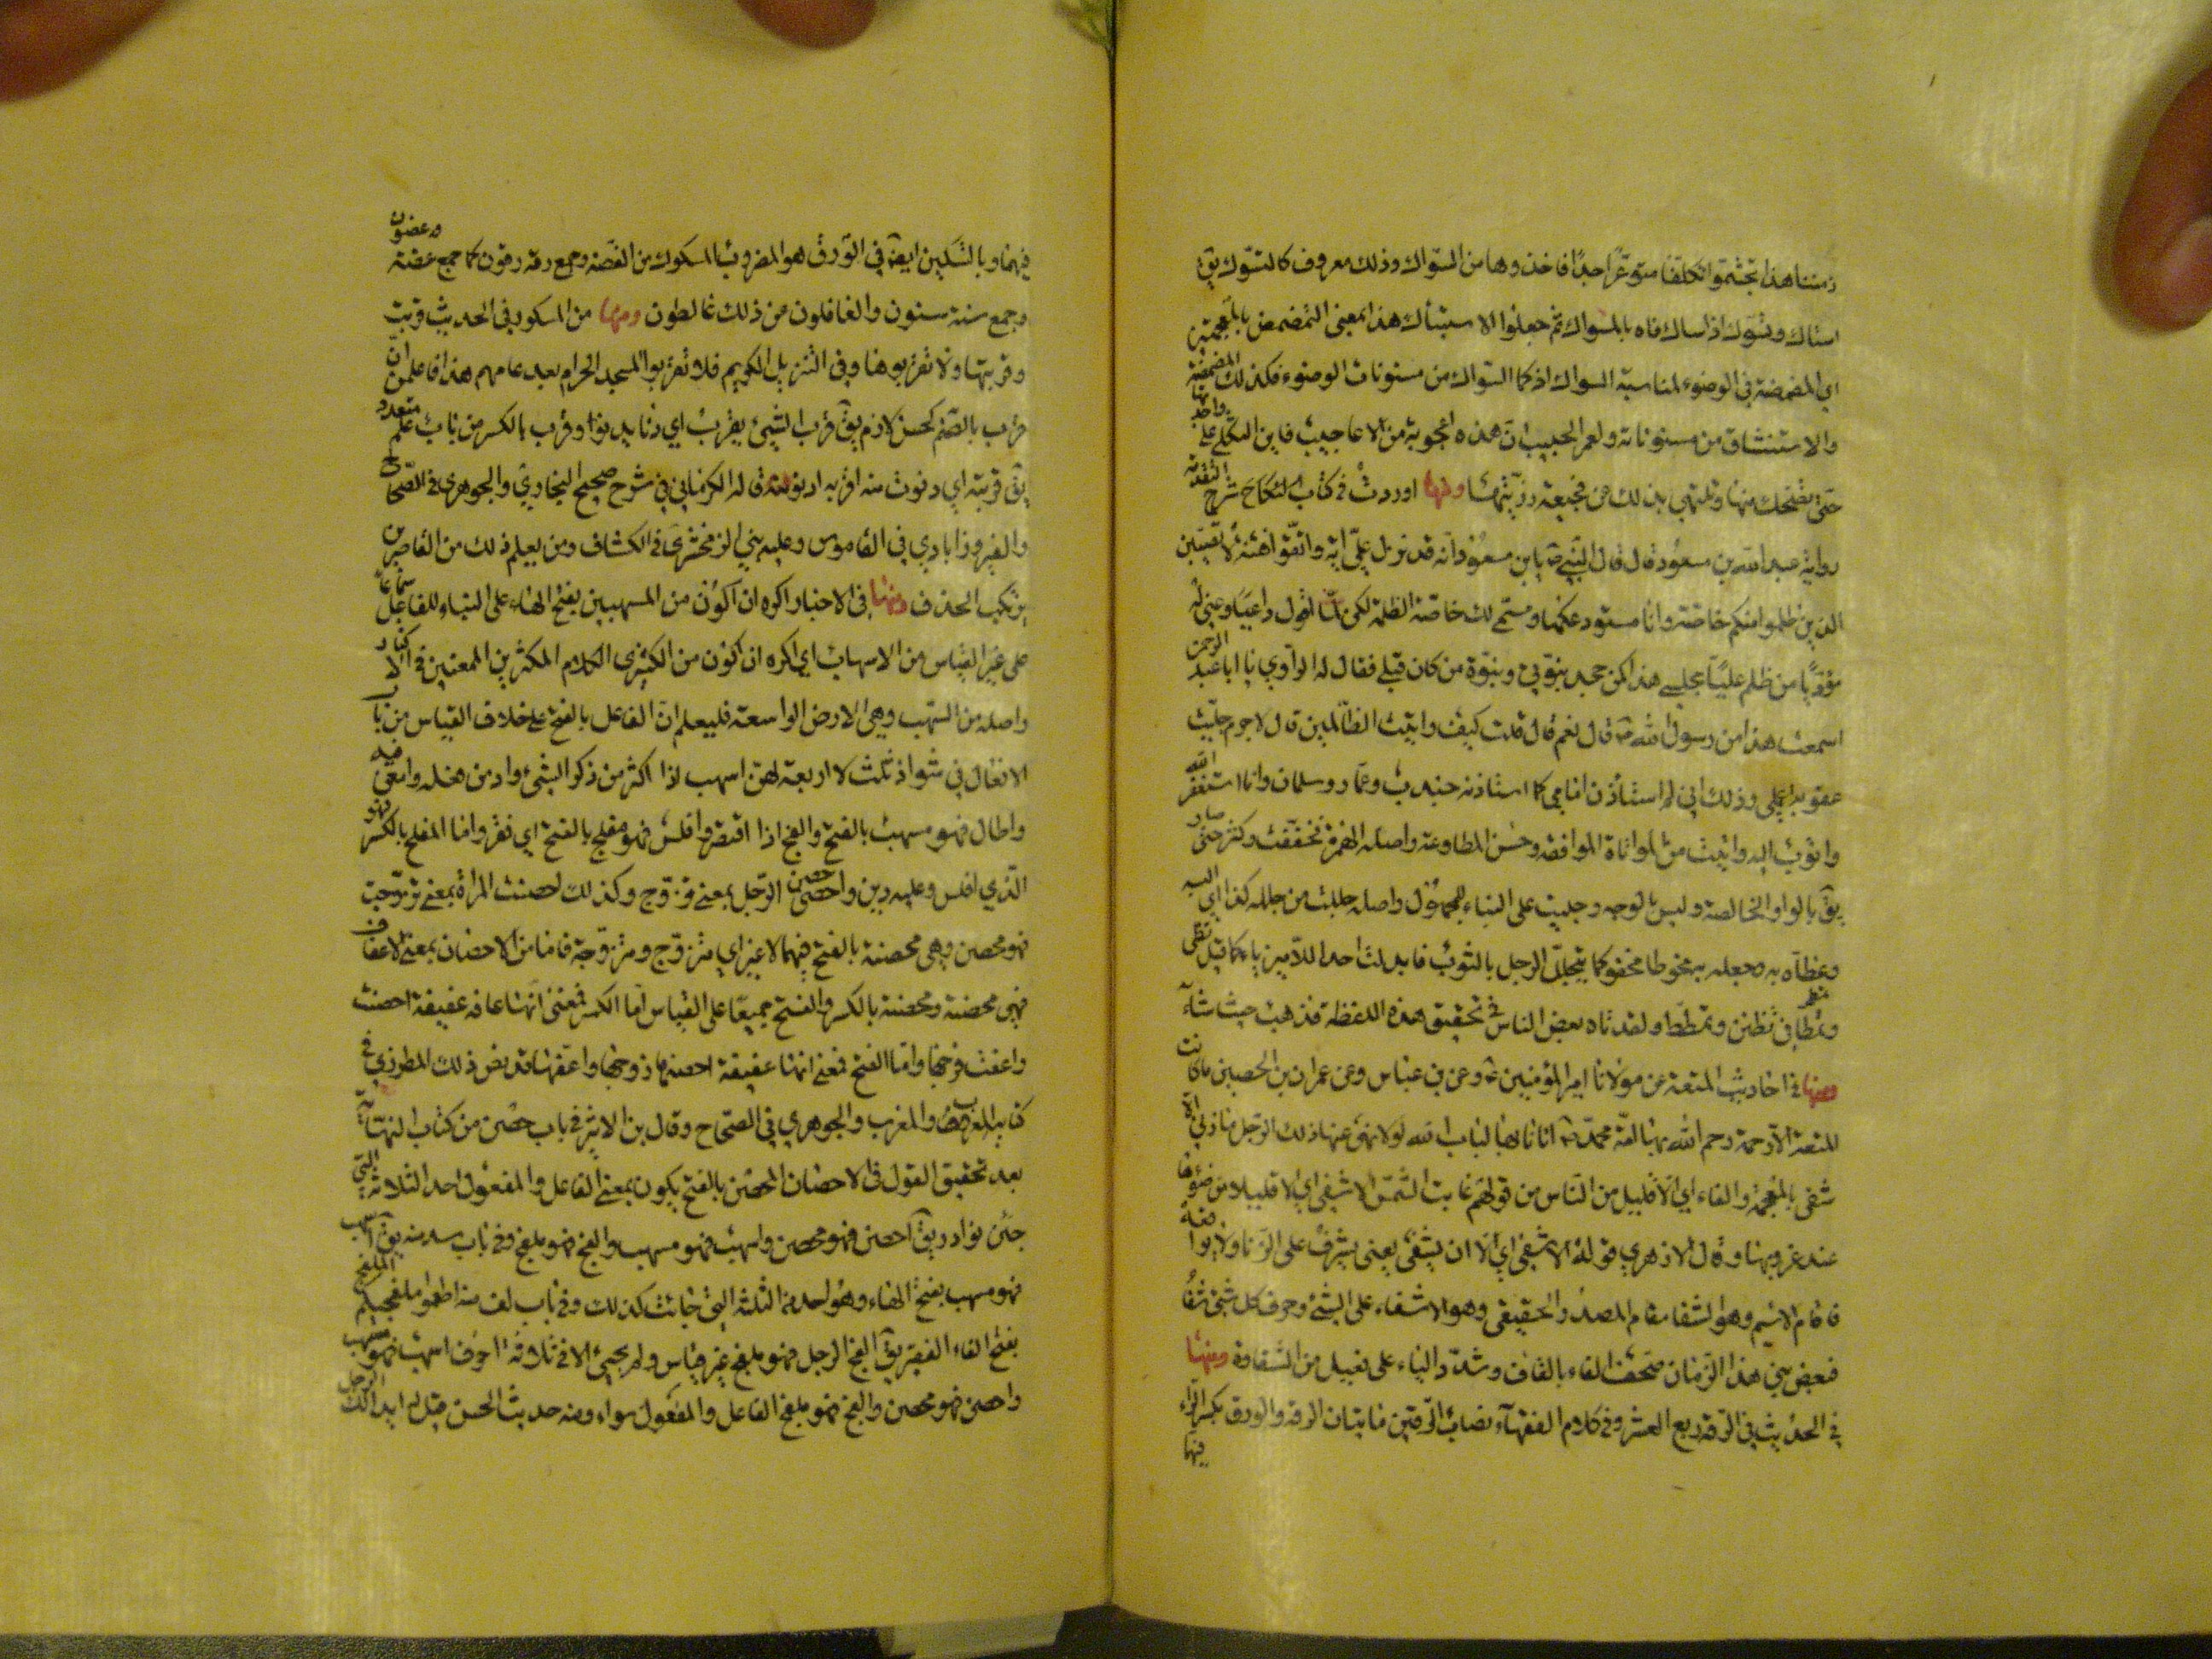 زمننا هذا تجشموا تكلفا متوعرا جدا فاخذوها من السواك وذلك معروف كالتسوك يق
استاك وتسوك اذا ساك فاه بالمسواك ثم جعلوا الاستياك هذا بمعنى التمضمض بالمعجمتين
اي المضمضة في الوضوء لمناسبة السواك اذ كما السواك من مسنونات الوضوء فكذلك المضمضة
والاستنشاق من مسنوناته ولعمر الحبيب ان هذه اعجوبة من الاعاجيب فاين الثكلى
حتى تضحك منها وتلتهي بذلك عن فجيعة رزيتها ومنها اوردت في كتاب النكاح شرح التقدمة
رواية عبد الله بن مسعود قال قال النبي ص يابن مسعود انه قد نزل علي اية واتقوا فتنة لا تصيبن
الذين ظلموا منكم خاصة وانا مستودعكها ومسم لك خاصة الظلمة فكن لما اقول واعيا وعني له
مؤديا من ظلم عليا مجلسي هذا كمن جحد بنوتي ونبوة من كان قبلي فقال له الراوي يا ابا عبد الرحمن
اسمعت هذا من رسول الله ص قال نعم قال قلت كيف واتيت الظالمين قال لا جرم جلبت
عقوبة عملي وذلك اني لم استأذن امامي كما استأذنه جندب وعمار وسلمان وانا استغفر الله
واتوب اليه واتيت من المواتاة الموافقة وحسن المطاوعة واصله الهمزة فخففت وكثر حتى صار
يق بالواو الخالصة وليس بالوجه وجلبت على البناء للمجهول واصله جللت من جلله كذا اي البسه
وغطاه به وجعله به مخوطا محفوفا كما يتجلل الرجل بالثوب فابدلت احد اللامين ياء كما قيل تظنى
وتمطى في تظنن وتمطط ولقد تاه بعض الناس في تحقيق هذه اللفظة فذهب حيث شاء
ومنها في احاديث المتعة عن مولانا امير المؤمنين ع وعن بن عباس وعن عمران بن الحصين ما كانت
المتعة الا رحمة رحم الله بها امة محمد ص اتانا بها كتاب الله لولا نهى عنها ذلك الرجل ما زنى الا
شفى بالمعجمة والفاء اي الا قليل من الناس من قولهم غابت الشمس الا شفى اي الا قليلا من ضوئها
عند غروبها وقال الازهري قوله الا شفى اي الا ان يشفى يعني يشرف على الزنا ولا يواقعه
فاقام الاسم وهو الشفا مقام المصدر الحقيقي وهو الاشفاء على الشئ وحرف كل شئ شفاه
فبعض بني هذا الزمان صحف الفاء بالقاف وشدد الياء على فعيل من الشقاوة ومنها
في الحديث في الرقة ربع العشر وفي كلام الفقهاء نصاب الرقتين مايتان الرقة والورق بكسر الراء
فيهما
فيهما وبالتسكين ايضا في الورق هو المضروب المسكوك من الفضة وجمع رقة رقون كما جمع عضة وعضون
وجمع سنة سنون والغافلون من ذلك غالطون ومنها من المسكور في الحديث قربت
وقربتها ولا تقربوها وفي التنزيل الكريم فلا تقربوا المسجد الحرام بعد عامهم هذا فاعلمن ان
قرب بالضم كحسن لازم يق قرب الشئ يقرب اي دنا يدنوا وقرب بالكسر من باب علم متعد
يق قربته اي دنوت منه اقربه ادنو منه قاله الكرماني في شرح صحيح البخاري والجوهري في الصحاح
والفيروزابادي في القاموس وعليه بني الزمخشري في الكشاف ومن يعلم ذلك من القاصرين
يرتكب الحذف ومنها في الاخبار اكره ان اكون من المسهبين بفتح الهاء على البناء للفاعل سماعا
على غير القياس من الاسهاب اي اكره ان اكون من الكثيري الكلام المكثرين الممعنين في الاكثار
واصله من السهب وهي الارض الواسعة فليعلم ان الفاعل بالفتح على خلاف القياس من باب
الافعال في شواذ ثلث لا اربعة لهن اسهب اذا اكثر من ذكر الشئ وادمن فعله وامعن فيه
واطال فهو مسهب بالفتح والفج اذا افتقر وافلس فهو مفلج بالفتح اي فقر واما المفلح بالكسر فهو
الذي افلس وعليه دين واحصن الرجل بمعنى تزوج وكذلك احصنت المراة بمعنى تزوجت
فهو محصن وهي محصنة بالفتح فيهما لا غير اي متزوج ومتزوجة فاما من الاحصان بمعنى الاعفاف
فهي محصنة ومحصنة بالكسر والفتح جميعا على القياس اما الكسر فمعنى انها عافة عفيفة احصنت
واعفت فرجها واما الفتح فمعنى انها عفيفة احصنها زوجها واعفها قد نص ذلك المطرزي في
كتابيه المعرب والمغرب والجوهري في الصحاح وقال بن الاثير في باب حصن من كتاب النهاية
بعد تحقيق القول في الاحصان المحصن بالفتح يكون بمعنى الفاعل والمفعول احد الثلاثة التي
جئن نوادر يق احصن فهو محصن واسهب فهو مسهب والفج فهو ملفج وفي باب سه منه يق اسهب
فهو مسهب بفتح الهاء وهو احد الثلثة التي جائت كذلك وفي باب لف منه اطعموا ملفجيكم الملفج
بفتح الفاء الفقير يق الفج الرجل فهو ملفج غير قياس ولم يجئ الا في ثلاثة احرف اسهب فهو مسهب
واحصن فهو محصن والفج فهو ملفج الفاعل والمفعول سواء ومنه حديث الحسن قيل له ايدالك الرجل